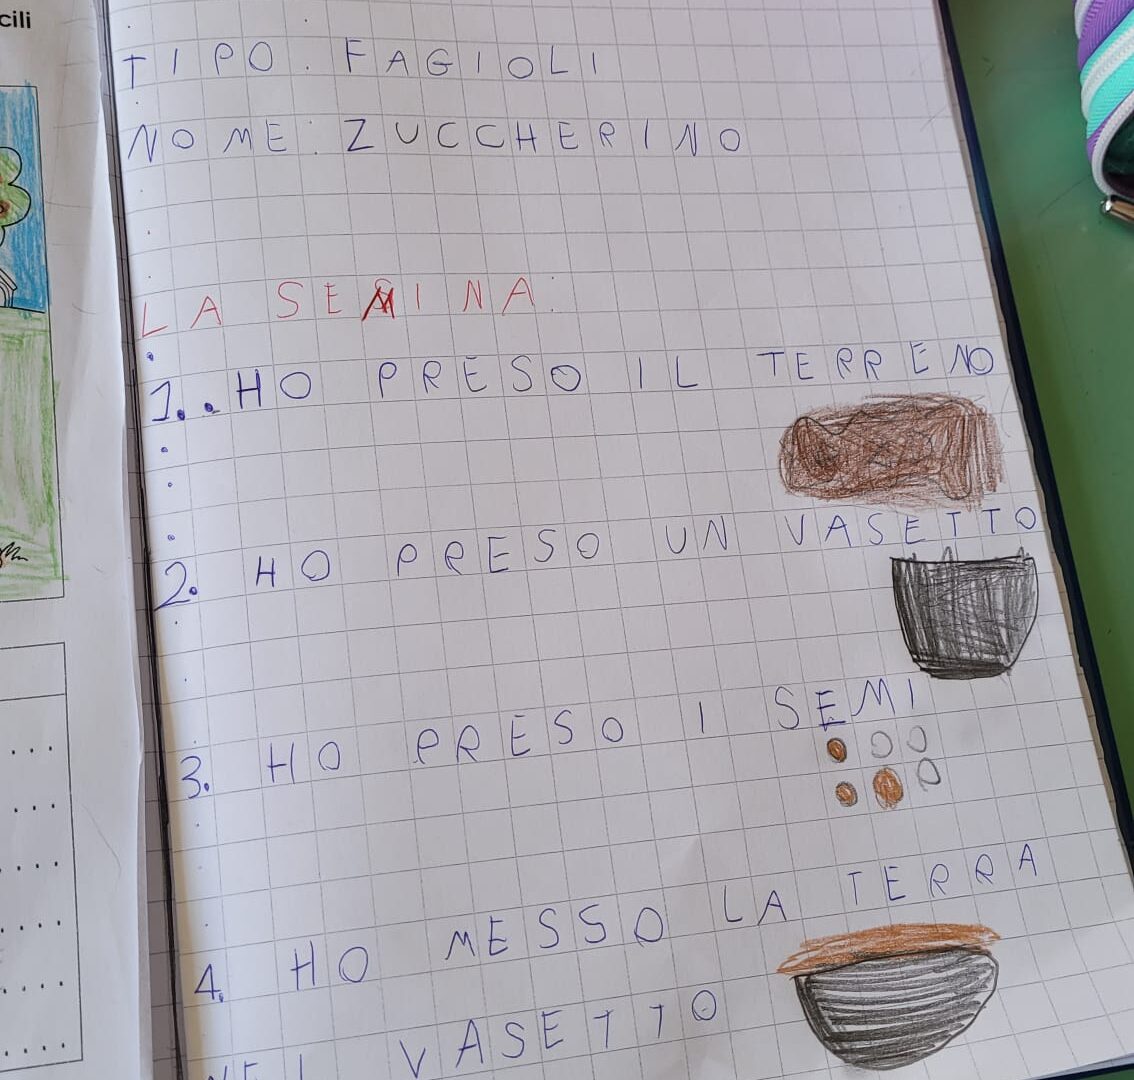 cili
TIPO. FAGIOLI
NOME: ZUCCHERINO
LA SEMINA:
1.. HO PRESO IL TERRENO
2. HO PRESO UN VASETTO
3. HO PRESO I SEMI
4. HO MESSO LA TERRA
NEL VASETTO